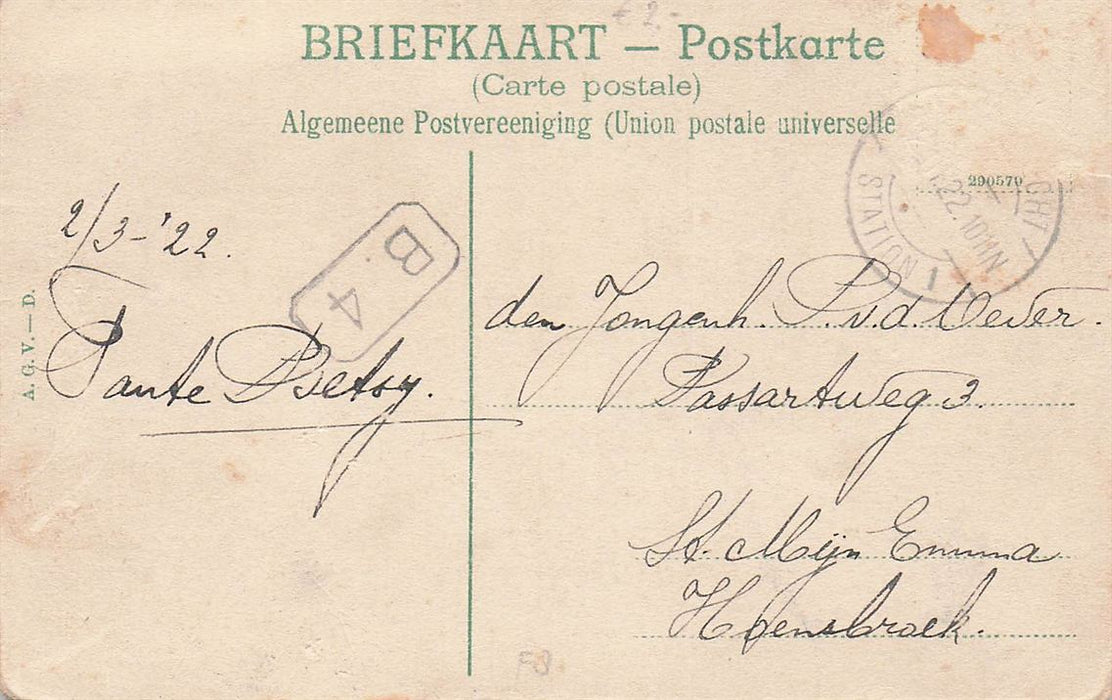 € 2.-
BRIEFKAART — Postkarte
(Carte postale)
Algemeene Postvereeniging (Union postale universelle
290570
22.10-11N
STATION
1
2/3-'22.
B. 4
A. G. V. — D.
Tante Betsy.
den Jongenh. P. v. d. Wever.
Passartweg 3.
St. Mijn Emma
Hoensbroek.
F3